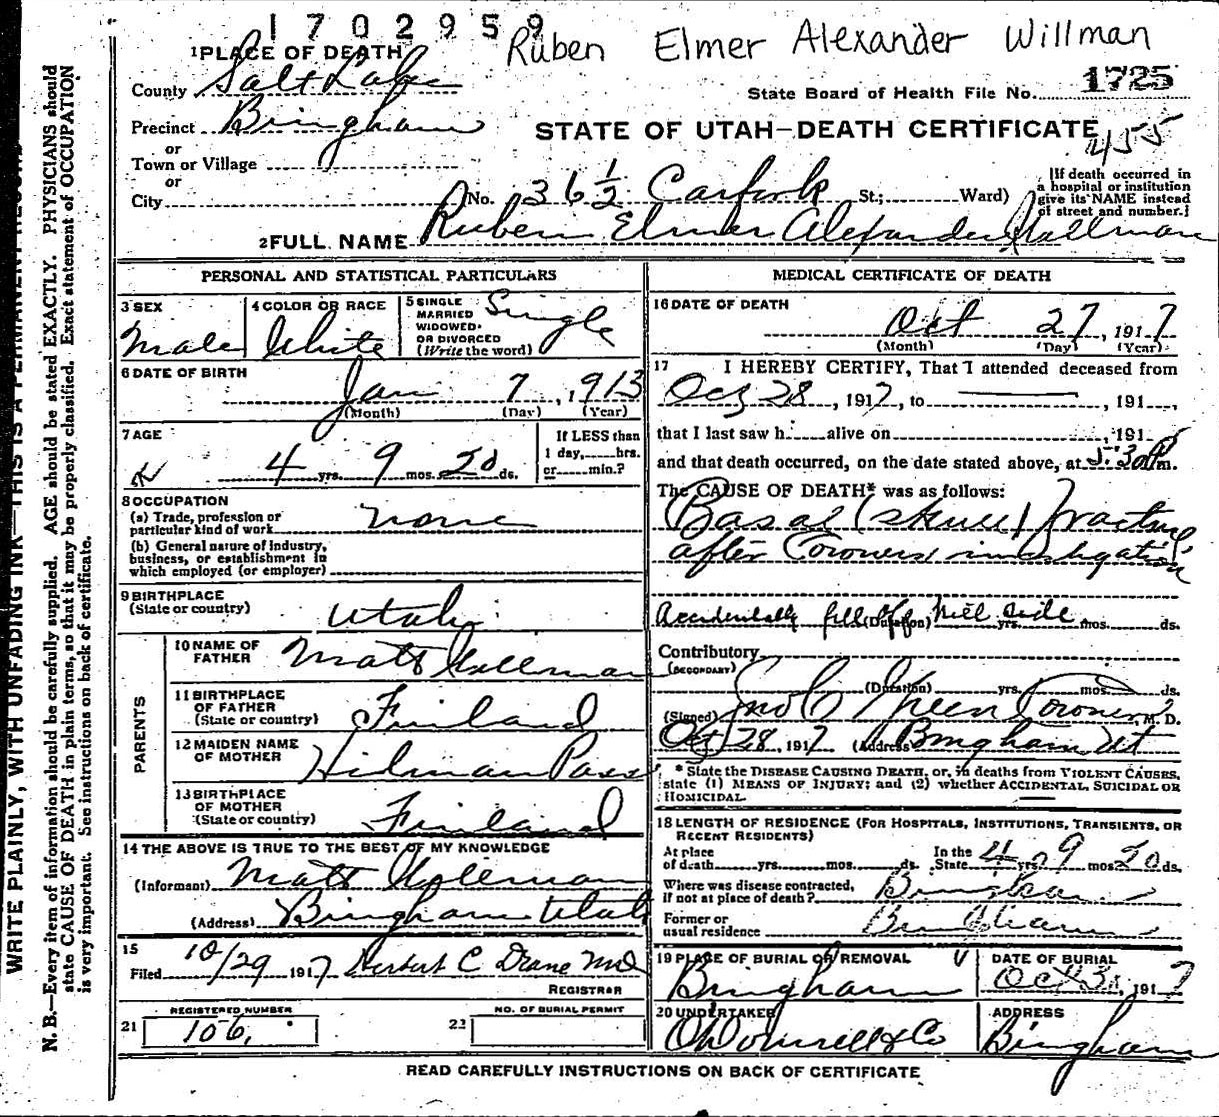 1702959
Ruben Elmer Alexander Willman
1 PLACE OF DEATH
County Salt Lake
State Board of Health File No. 1725
Precinct Bingham
STATE OF UTAH—DEATH CERTIFICATE
455
or
Town or Village
or
City
No. 36 1/2 Carfork St.; Ward)
[If death occurred in
a hospital or institution
give its NAME instead
of street and number.]
2 FULL NAME Ruben Elmer Alexander
PERSONAL AND STATISTICAL PARTICULARS
3 SEX
Male
4 COLOR OR RACE
White
5 SINGLE
MARRIED
WIDOWED
OR DIVORCED
(Write the word)
Single
6 DATE OF BIRTH
Jan 7, 1913
(Month) (Day) (Year)
7 AGE
4 yrs. 9 mos. 20 ds.
If LESS than
1 day, hrs.
or min.?
8 OCCUPATION
(a) Trade, profession or
particular kind of work none
(b) General nature of industry,
business, or establishment in
which employed (or employer)
9 BIRTHPLACE
(State or country) Utah
PARENTS
10 NAME OF
FATHER Matt
11 BIRTHPLACE
OF FATHER
(State or country) Finland
12 MAIDEN NAME
OF MOTHER
13 BIRTHPLACE
OF MOTHER
(State or country) Finland
14 THE ABOVE IS TRUE TO THE BEST OF MY KNOWLEDGE
(Informant) Matt
(Address) Bingham Utah
15
Filed 10/29 1917 Herbert C Drane MD
REGISTRAR
REGISTERED NUMBER
21 106.
NO. OF BURIAL PERMIT
22
MEDICAL CERTIFICATE OF DEATH
16 DATE OF DEATH
Oct 27, 1917
(Month) (Day) (Year)
17 I HEREBY CERTIFY, That I attended deceased from
Oct 28, 1917, to , 191
that I last saw h alive on , 191
and that death occurred, on the date stated above, at 5:30 P m.
The CAUSE OF DEATH* was as follows:
Basal (skull) fracture
after Coroners investigation
Accidentally fell off hill side
(Duration) yrs. mos. ds.
Contributory
(SECONDARY)
(Duration) yrs. mos. ds.
(Signed) Coroner M. D.
Oct 28, 1917 (Address) Bingham Ut
* State the DISEASE CAUSING DEATH, or, in deaths from VIOLENT CAUSES,
state (1) MEANS OF INJURY; and (2) whether ACCIDENTAL, SUICIDAL OR
HOMICIDAL.
18 LENGTH OF RESIDENCE (FOR HOSPITALS, INSTITUTIONS, TRANSIENTS, OR
RECENT RESIDENTS)
At place
of death yrs. mos. ds.
In the
State 4 yrs. 9 mos. 20 ds.
Where was disease contracted,
If not at place of death? Bingham
Former or
usual residence Bingham
19 PLACE OF BURIAL OR REMOVAL
Bingham
DATE OF BURIAL
Oct 1917
20 UNDERTAKER
O'Donnell & Co
ADDRESS
Bingham
READ CAREFULLY INSTRUCTIONS ON BACK OF CERTIFICATE
WRITE PLAINLY, WITH UNFADING INK—THIS IS A PERMANENT RECORD
N. B.—Every item of information should be carefully supplied. AGE should be stated EXACTLY. PHYSICIANS should
state CAUSE OF DEATH in plain terms, so that it may be properly classified. Exact statement of OCCUPATION
is very important. See instructions on back of certificate.